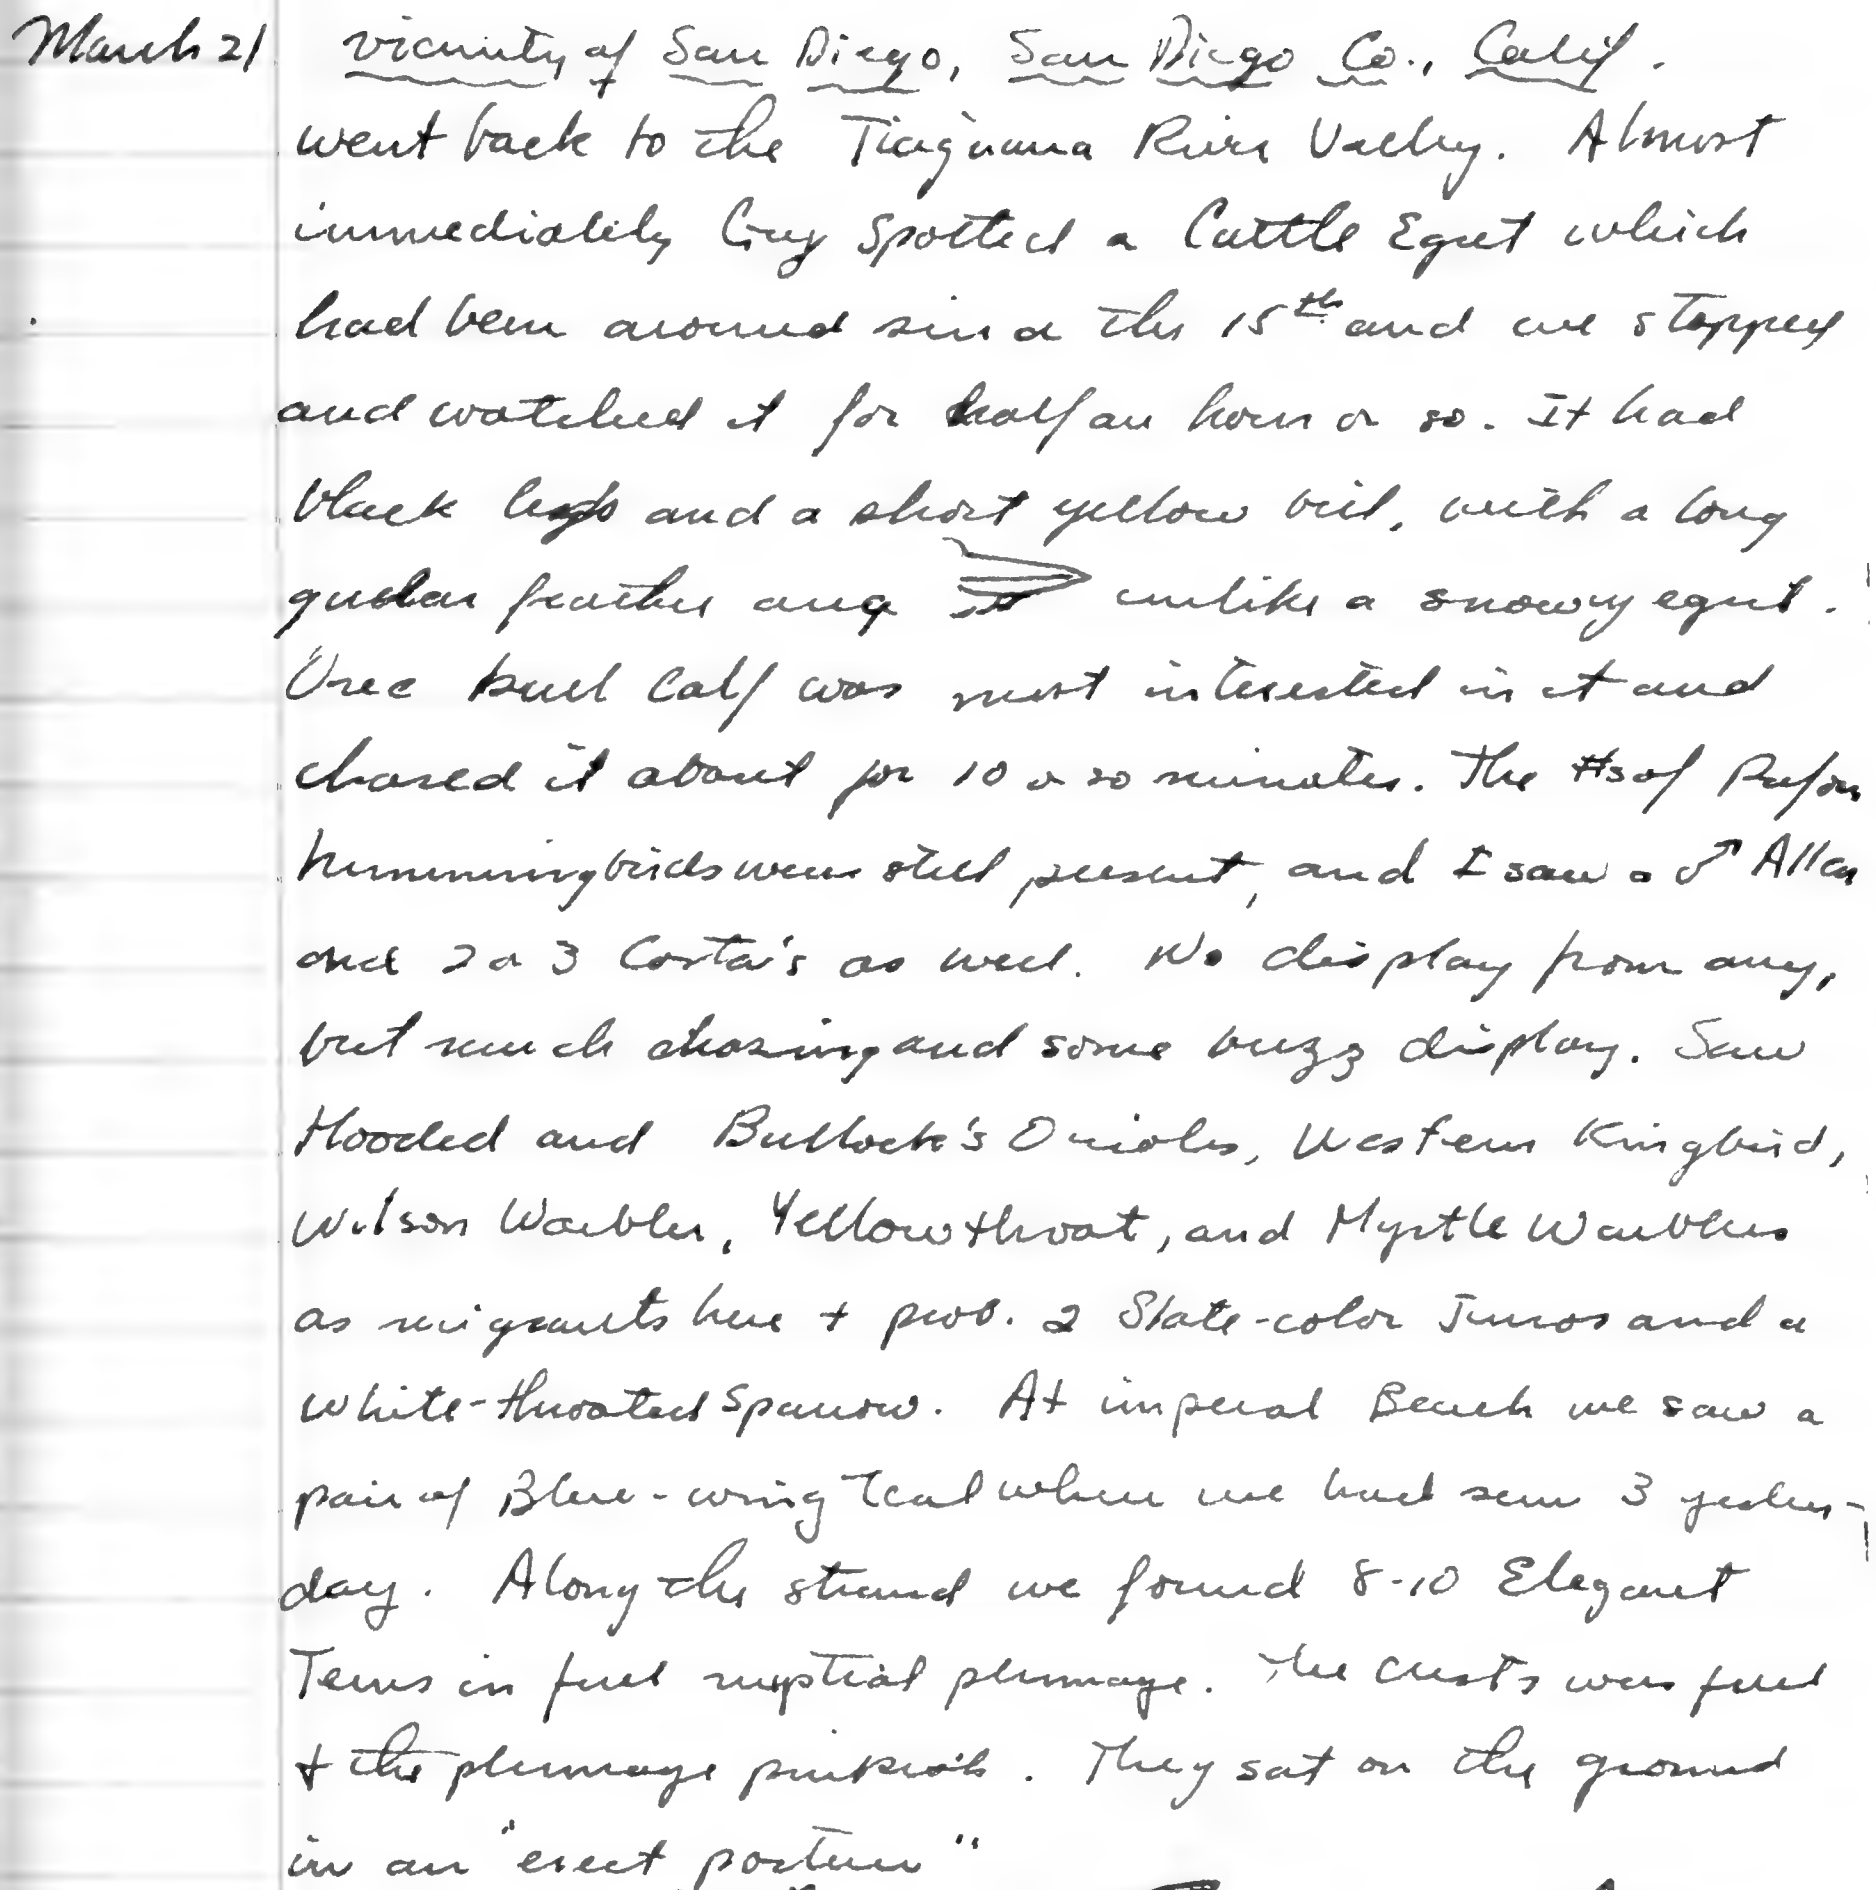 March 21 vicinity of San Diego, San Diego Co., Calif.
went back to the Tiaguana River Valley. Almost
immediately Guy spotted a Cattle Egret which
had been around since the 15th and we stopped
and watched it for half an hour or so. It had
black legs and a short yellow bill, with a long
gular feather unlike a snowy egret.
One bull calf was most interested in it and
chased it about for 10 or so minutes. The #s of Rufous
hummingbirds were still present, and I saw a ♂ Allen
and 2 or 3 Costa's as well. No display from any,
but much chasing and some buzz display. Saw
Hooded and Bullock's Orioles, Western Kingbird,
Wilson Warbler, Yellowthroat, and Myrtle Warblers
as migrants here + prob. 2 Slate-color Juncos and a
White-throated Sparrow. At imperial Beach we saw a
pair of Blue-wing Teal where we had seen 3 yester-
day. Along the strand we found 8-10 Elegant
Terns in full nuptial plumage. The crests were full
+ the plumage pinkish. They sat on the ground
in an "erect posture"